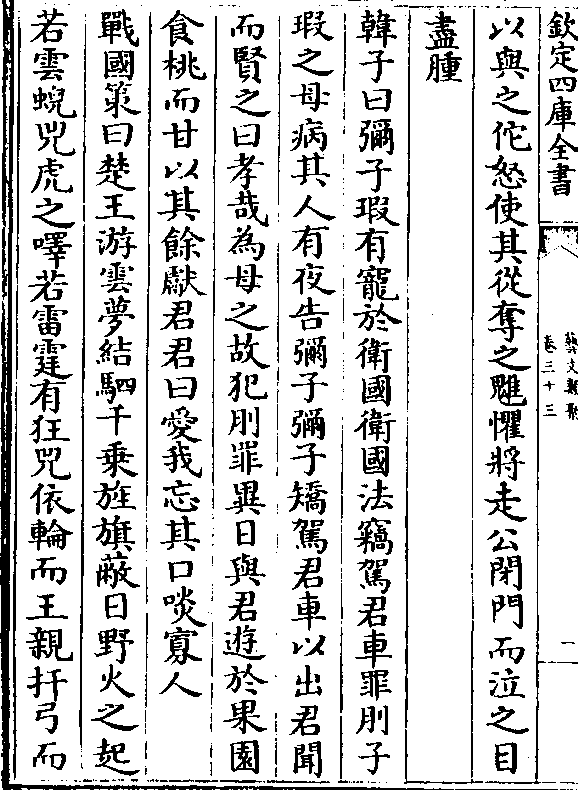 欽定四庫全書
藝文類聚
卷三十三
二
以與之佗怒使其從奪之魋懼將走公閉門而泣之目
盡腫
韓子曰彌子瑕有寵於衛國衛國法竊駕君車罪刖子
瑕之母病其人有夜告彌子彌子矯駕君車以出君聞
而賢之曰孝哉為母之故犯刖罪異日與君遊於果園
食桃而甘以其餘獻君君曰愛我忘其口啖寡人
戰國策曰楚王游雲夢結駟千乗旌旗蔽日野火之起
若雲蜺兕虎之嘷若雷霆有狂兕依輪而王親扞弓而